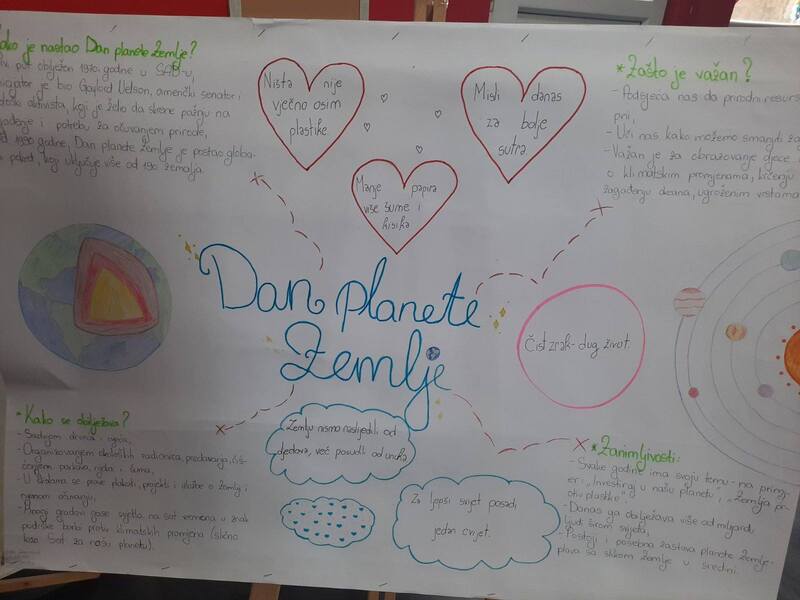 ako je nastao Dan planete Zemlje?
put obilježen 1970. godine u SAD-u,
je bio Gaylord Nelson, američki senator i
aktivista, koji je želio da skrene pažnju na
i potrebu za očuvanjem prirode,
1990 godine, Dan planete Zemlje je postao globa-
pokret, koji uključuje više od 190 zemalja.
Ništa nije
vječno osim
plastike.
Misli danas
za bolje
sutra.
Manje papira
više šume i
kisika
*Zašto je važan?
- Podsjeća nas da prirodni resurs
pni,
- Uči nas kako možemo smanjiti za
- Važan je za obrazovanje djece
o klimatskim promjenama, krčenju
zagađenju okeana, ugroženim vrstama
Dan planete
Zemlje
Čist zrak - dug život.
*Kako se obilježava?
- Sadnjom drveća i cvijeća,
- Organizovanjem ekoloških radionica, predavanja, čiš-
ćenjem parkova, rijeka i šuma,
- U školama se prave plakati, projekti i izložbe o Zemlji i
njenom očuvanju,
- Mnogi gradovi gase svjetla na sat vremena u znak
podrške borbi protiv klimatskih promjena (slično
kao Sat za našu planetu).
Zemlju nismo naslijedili od
djedova, već posudili od unuka
Za ljepši svijet posadi
jedan cvijet.
*Zanimljivosti:
- Svake godine ima svoju temu - na primj-
er: „Investiraj u našu planetu", „Zemlja pr-
otiv plastike".
- Danas ga obilježava više od milijardu
ljudi širom svijeta,
- Postoji i posebna zastava planete Zemlje-
plava sa slikom Zemlje u sredini.